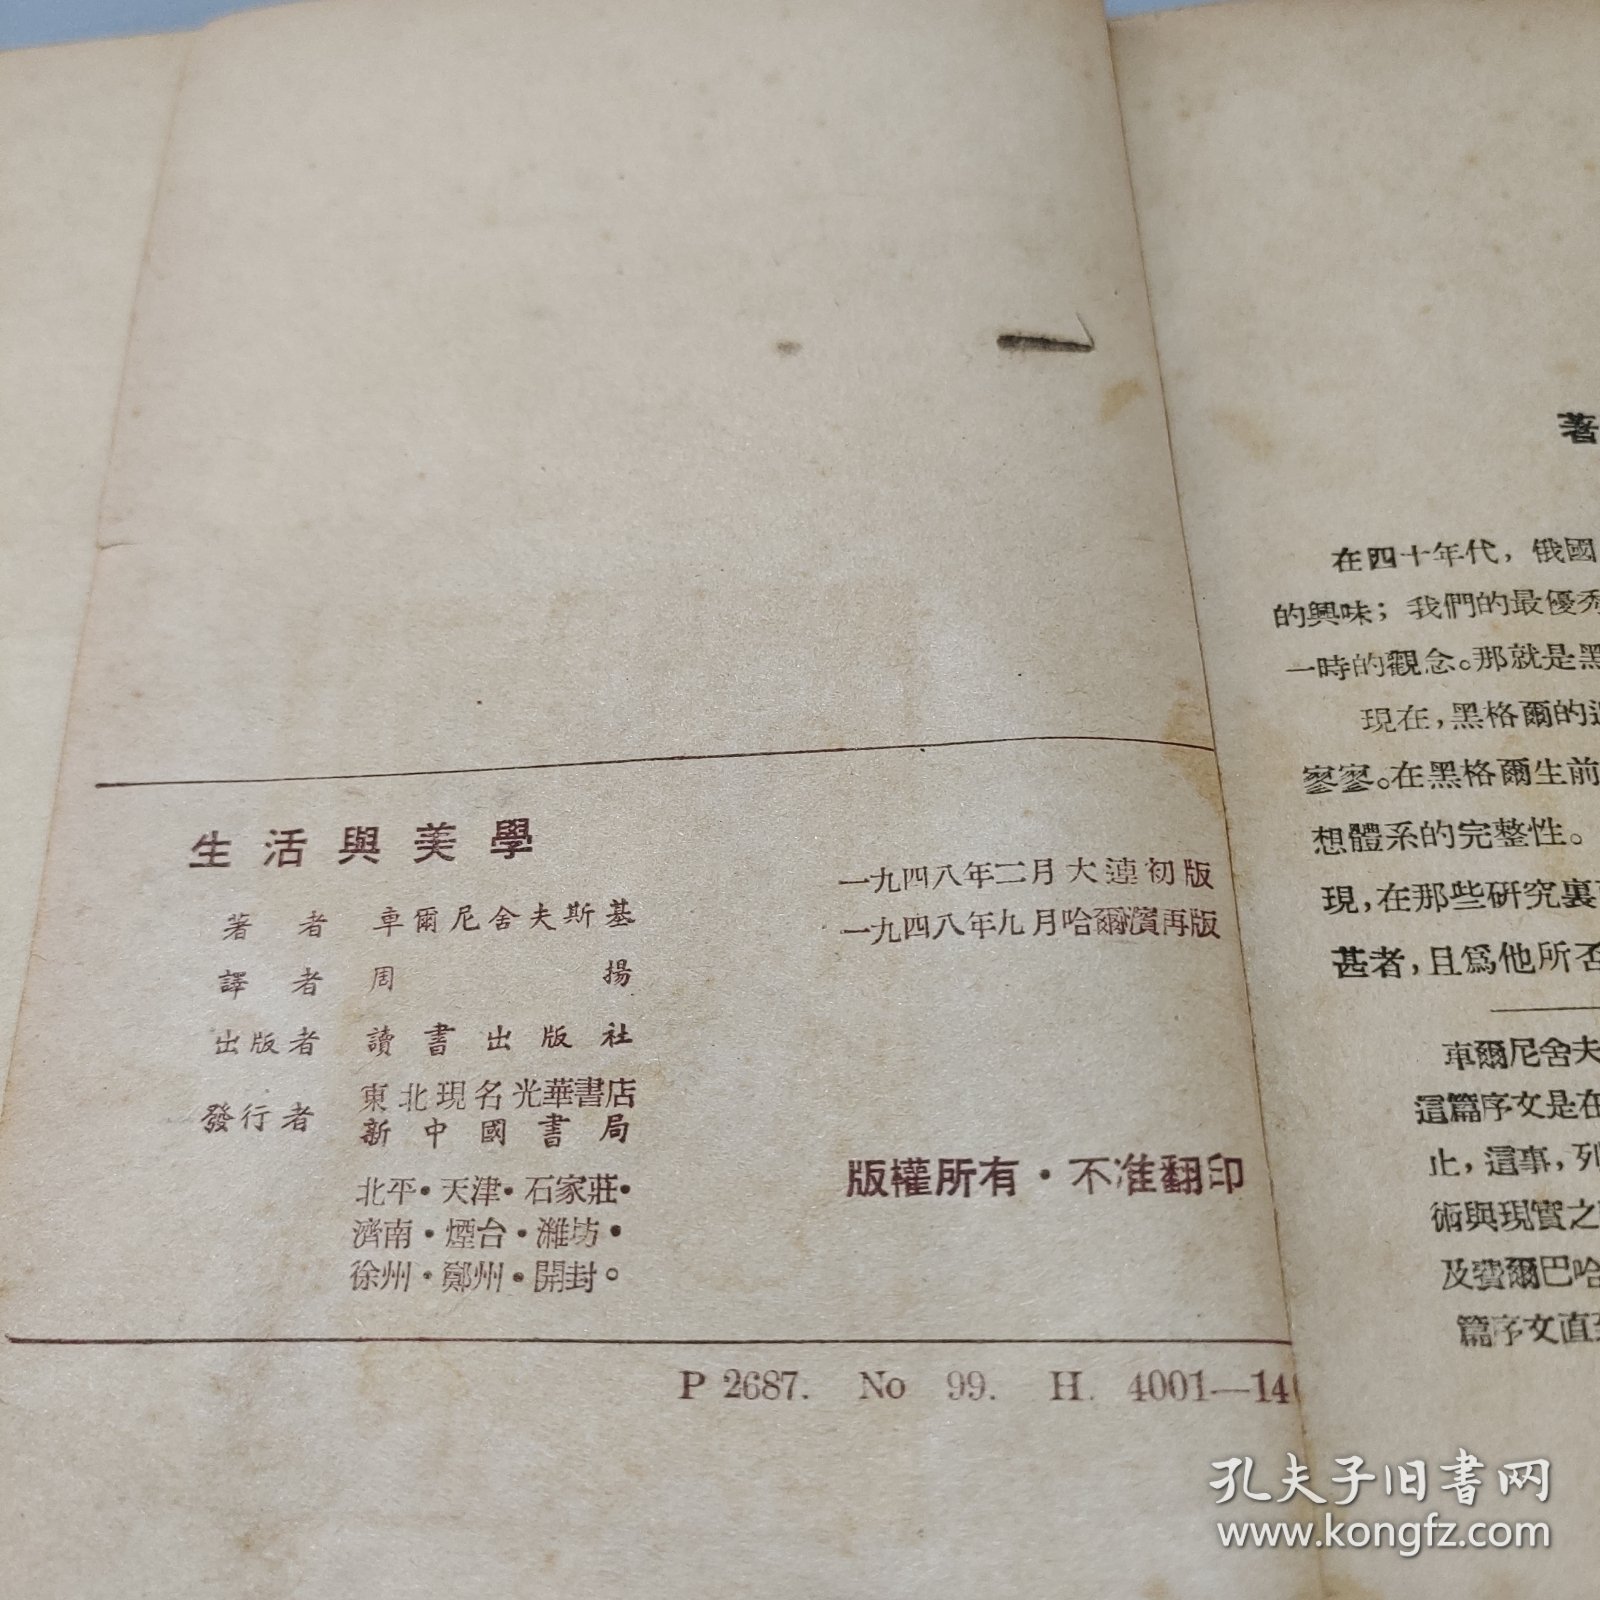 生活與美學
著者 車爾尼舍夫斯基
譯者 周揚
出版者 讀書出版社
發行者 東北現名光華書店
新中國書局
北平·天津·石家莊·
濟南·煙台·濰坊·
徐州·鄭州·開封。
一九四八年二月大連初版
一九四八年九月哈爾濱再版
版權所有·不准翻印
P 2687. No 99. H. 4001—14
著
在四十年代，俄國
的興味；我們的最優秀
一時的觀念。那就是黑
現在，黑格爾的
寥寥。在黑格爾生前
想體系的完整性。
現，在那些研究裏
甚者，且爲他所否
車爾尼舍夫
這篇序文是在
止，這事，列
術與現實之
及費爾巴哈
篇序文直到
孔夫子旧书网
www.kongfz.com